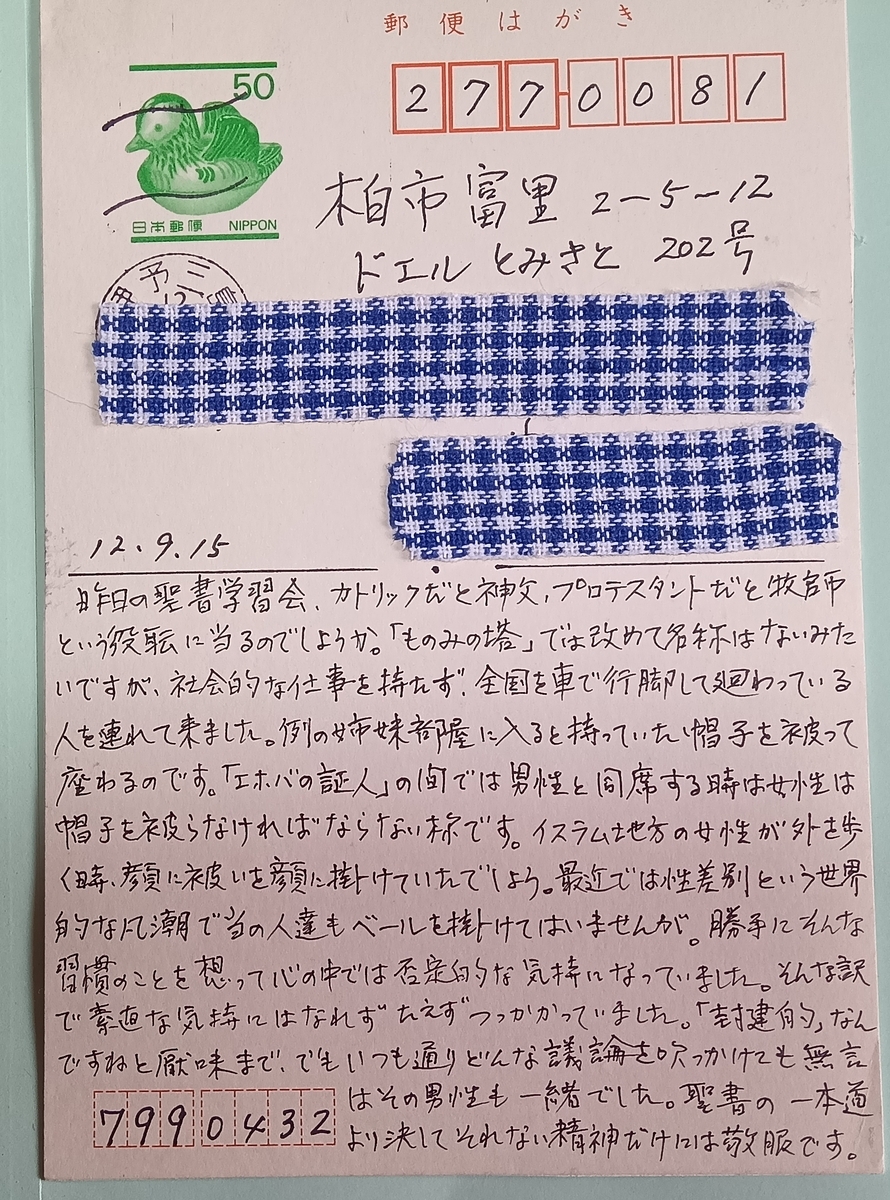 郵便はがき
50
日本郵便 NIPPON
277-0081
柏市富里 2-5-12
ドエル とみさと 202号
伊予三島
12.9.15
昨日の聖書学習会、カトリックだと神父、プロテスタントだと牧師
という役転に当るのでしようか。「ものみの塔」では改めて名称はないみた
いですが、社会的な仕事を持たず、全国を車で行脚して廻わっている
人を連れて来ました。例の姉妹部屋に入ると持っていた帽子を被って
座わるのです。「エホバの証人」の間では男性と同席する時は女性は
帽子を被らなければならない様です。イスラム地方の女性が外を歩
く時、顔に被いを顔に掛けていたでしよう。最近では性差別という世界
的な風潮で当の人達もベールを掛けてはいませんが。勝手にそんな
習慣のことを想って心の中では否定的な気持になっていました。そんな訳
で素直な気持にはなれずたえずつっかかっていました。「封建的」なん
ですねと厭味まで、でもいつも通りどんな議論を吹っかけても無言
はその男性も一緒でした。聖書の一本道
より決してそれない精神だけには敬服です。
7990432